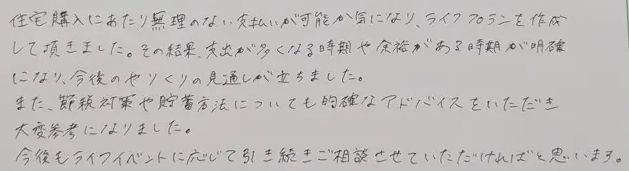 住宅購入にあたり無理のない支払いが可能か気になり、ライフプランを作成
して頂きました。その結果、支出が多くなる時期や余裕がある時期が明確
になり、今後のやりくりの見通しが立ちました。
また、節税対策や貯蓄方法についても的確なアドバイスをいただき
大変参考になりました。
今後もライフイベントに応じて引き続きご相談させていただければと思います。